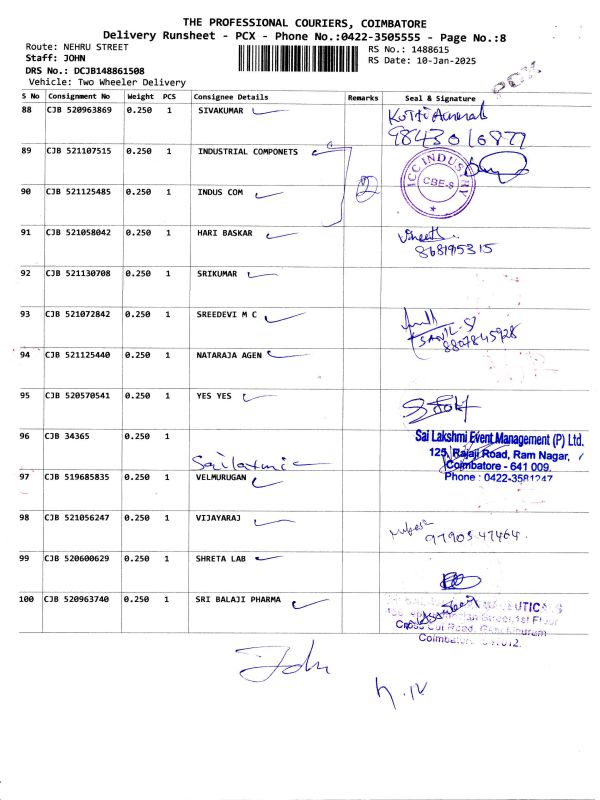 THE PROFESSIONAL COURIERS, COIMBATORE
Delivery Runsheet - PCX - Phone No.:0422-3505555 - Page No.:8
Route: NEHRU STREET
RS No.: 1488615
Staff: JOHN
RS Date: 10-Jan-2025
DRS No.: DCJB148861508
PCX
Vehicle: Two Wheeler Delivery
S No Consignment No Weight PCS Consignee Details Remarks Seal & Signature
88 CJB 520963869 0.250 1 SIVAKUMAR
9843016877
89 CJB 521107515 0.250 1 INDUSTRIAL COMPONETS
ICC INDUSTRY
CBE-9
90 CJB 521125485 0.250 1 INDUS COM 2
91 CJB 521058042 0.250 1 HARI BASKAR
Vineeth
92 CJB 521130708 0.250 1 SRIKUMAR
93 CJB 521072842 0.250 1 SREEDEVI M C
8807845928
94 CJB 521125440 0.250 1 NATARAJA AGEN
95 CJB 520570541 0.250 1 YES YES
96 CJB 34365 0.250 1
Sailaxmi
Sai Lakshmi Event Management (P) Ltd.
125, Rajaji Road, Ram Nagar,
Coimbatore - 641 009.
Phone : 0422-3581247
97 CJB 519685835 0.250 1 VELMURUGAN
98 CJB 521056247 0.250 1 VIJAYARAJ
9790547464
99 CJB 520600629 0.250 1 SHRETA LAB
100 CJB 520963740 0.250 1 SRI BALAJI PHARMA
Street, 1st Floor
Cross Cut Road, Gandhipuram
John